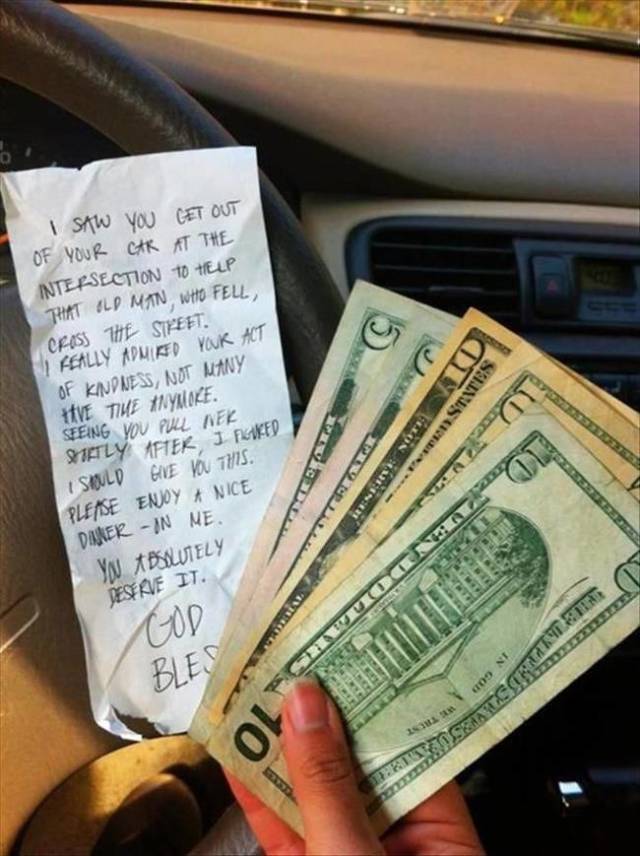 I SAW YOU GET OUT
OF YOUR CAR AT THE
INTERSECTION TO HELP
THAT OLD MAN, WHO FELL,
CROSS THE STREET.
I REALLY ADMIRED YOUR ACT
OF KINDNESS, NOT MANY
HAVE TIME ANYMORE.
SEEING YOU PULL OVER
SHORTLY AFTER, I FIGURED
I SHOULD GIVE YOU THIS.
PLEASE ENJOY A NICE
DINNER - ON ME.
YOU ABSOLUTELY
DESERVE IT.
GOD
BLES
10
FEDERAL RESERVE NOTE
STATES
THE UNITED STATES OF AMERICA
IN GOD
WE TRUST
10